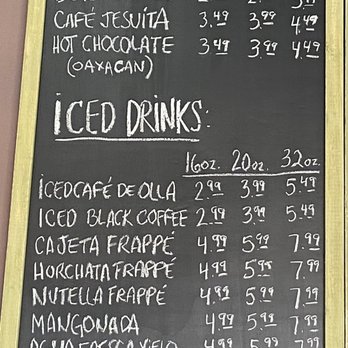 CAFÉ JESUITA 3.49 3.99 4.49
HOT CHOCOLATE 3.49 3.99 4.49
(OAXACAN)
ICED DRINKS:
16oz. 20oz. 32oz.
ICED CAFÉ DE OLLA 2.99 3.99 5.49
ICED BLACK COFFEE 2.99 3.99 5.49
CAJETA FRAPPÉ 4.99 5.99 7.99
HORCHATA FRAPPÉ 4.99 5.99 7.99
NUTELLA FRAPPÉ 4.99 5.99 7.99
MANGONADA 4.99 5.99 7.99